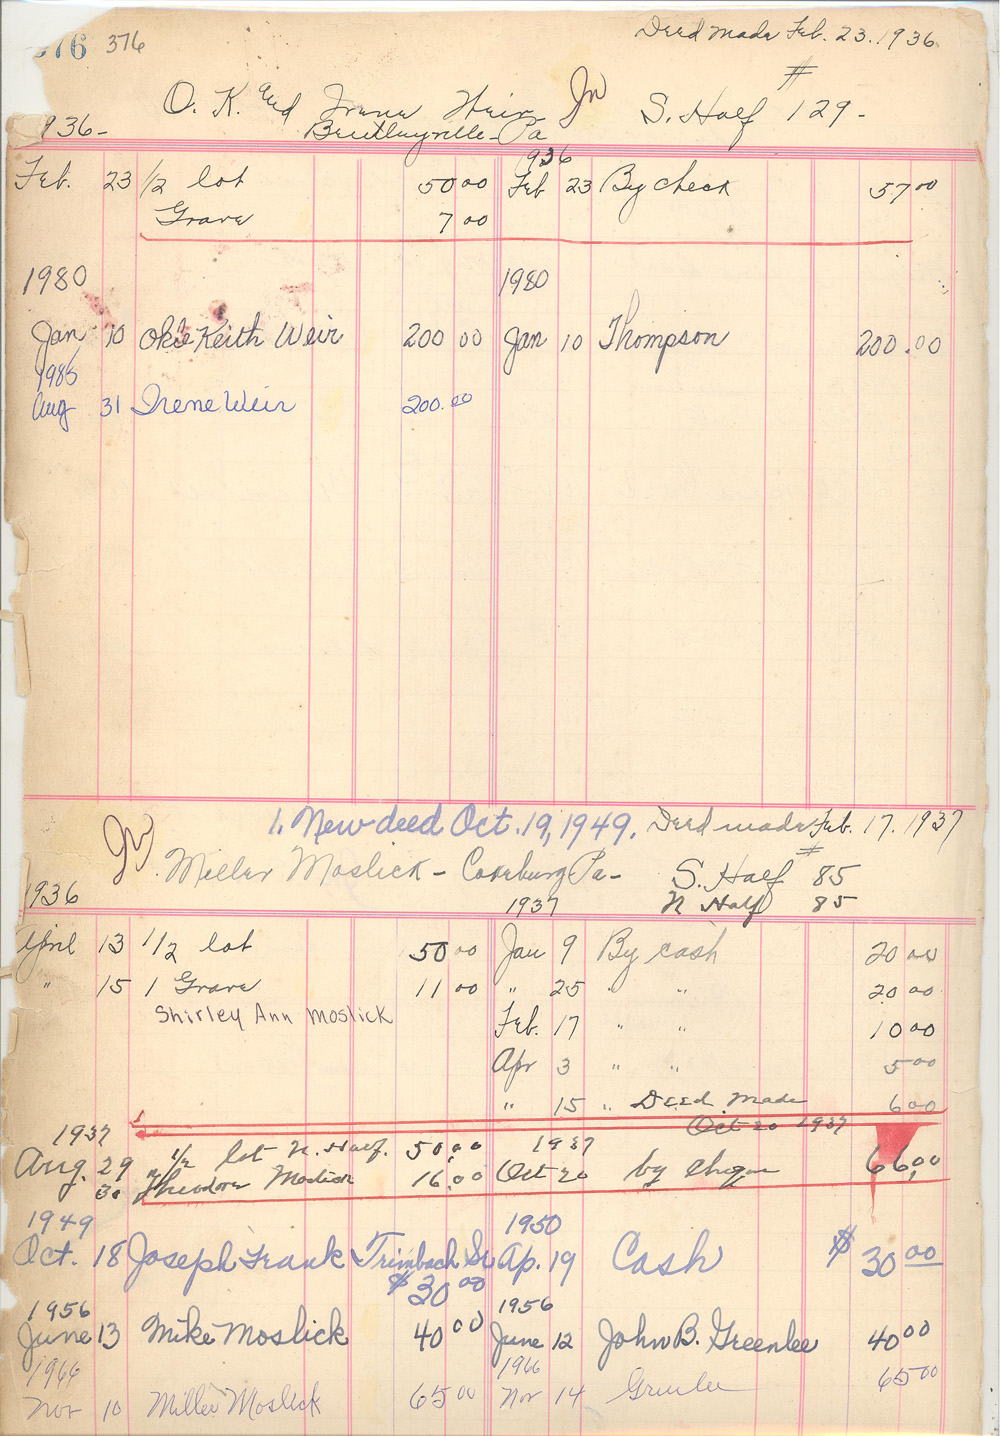 376 376 Deed made Feb. 23. 1936
O. K. and Irene Weir In S. Half #129-
Bentleyville-Pa
936-
936
Feb. 23 1/2 lot 50 00 Feb 23 By check 57 00
Grave 7 00
1980 1980
Jan 10 Okie Keith Weir 200 00 Jan 10 Thompson 200.00
1985
Aug 31 Irene Weir 200.00
1. New deed Oct. 19, 1949. Deed made Feb. 17. 1937
In Miller Moslick - Cokeburg Pa- S. Half #85
1936 1937 N Half 85
April 13 1/2 lot 50 00 Jan 9 By cash 20 00
" 15 1 Grave 11 00 " 25 " " 20 00
Shirley Ann Moslick
Feb. 17 " " 10 00
Apr 3 " " 5 00
" 15 " Deed Made 6 00
Oct 20 1937
1937 1937
Aug. 29 1/2 lot N. Half. 50.00 Oct 20 by cheque 66.00
30 Theodore Moslick 16.00
1949 1950
Oct. 18 Joseph Frank Trimbach Sr. Ap. 19 Cash $30 00
$30 00
1956 1956
June 13 Mike Moslick 40 00 June 12 John B. Greenlee 40 00
1966 1966
Nov 10 Miller Moslick 65 00 Nov 14 Greenlee 65 00